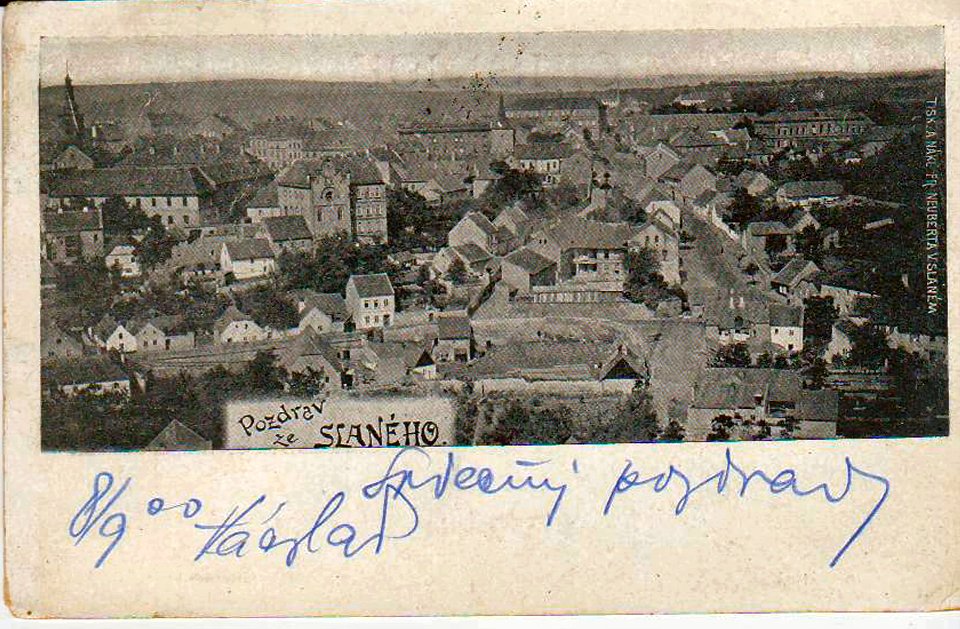 TISK A NÁKL. FR. NEUBERTA V SLANÉM
Pozdrav
ze SLANÉHO.
Srdečný pozdrav
8/9 00 Václav